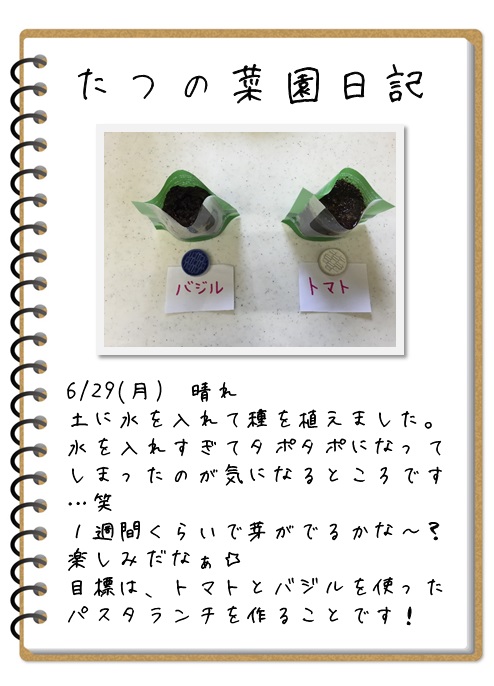 たつの菜園日記
バジル
トマト
6/29(月) 晴れ
土に水を入れて種を植えました。
水を入れすぎてタポタポになって
しまったのが気になるところです
…笑
1週間くらいで芽がでるかな〜?
楽しみだなぁ☆
目標は、トマトとバジルを使った
パスタランチを作ることです!